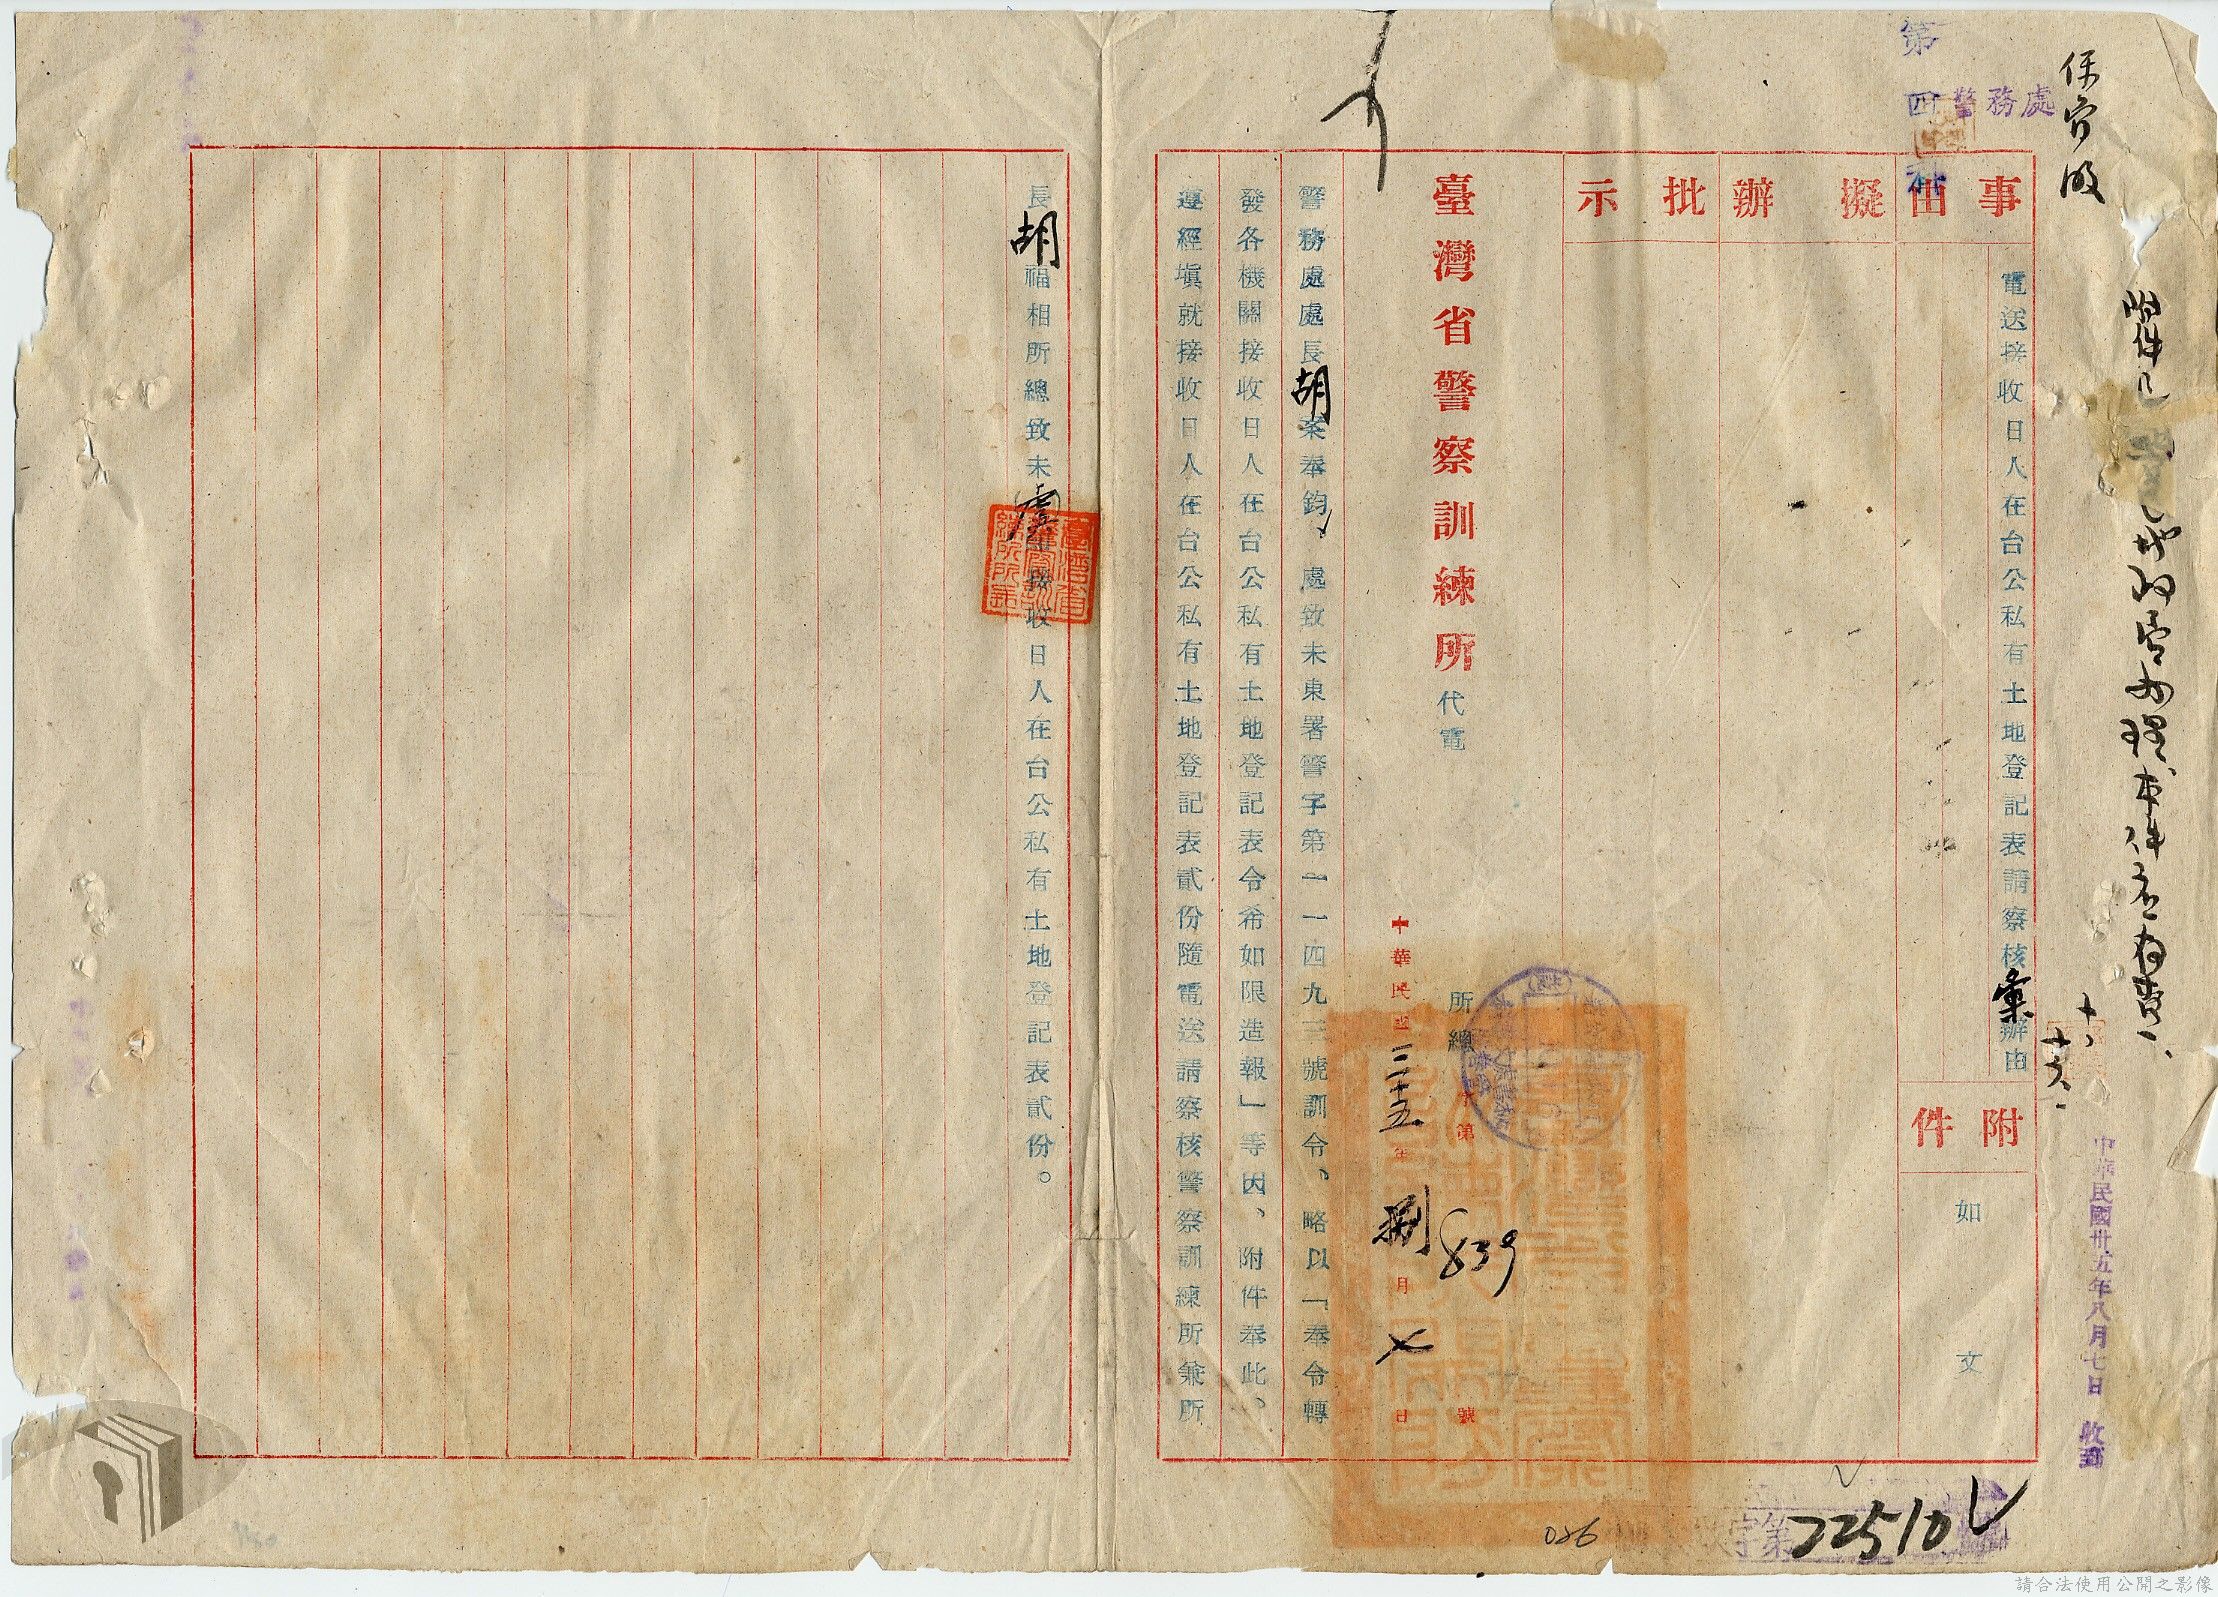 第四科
警務處
事由
電送接收日人在台公私有土地登記表請察核彙辦由
附件
如文
擬辦
批示
臺灣省警察訓練所代電
所總字第839號
中華民國三十五年捌月七日
警務處處長胡案奉鈞、處致未東署警字第一一四九三號訓令、略以「奉令轉
發各機關接收日人在台公私有土地登記表令希如限造報」等因、附件奉此、
遵經填就接收日人在台公私有土地登記表貳份隨電送請察核警察訓練所兼所
長胡福相所總致未虞印接收日人在台公私有土地登記表貳份。
中華民國卅五年八月七日收到
字第22510
086
請合法使用公開之影像